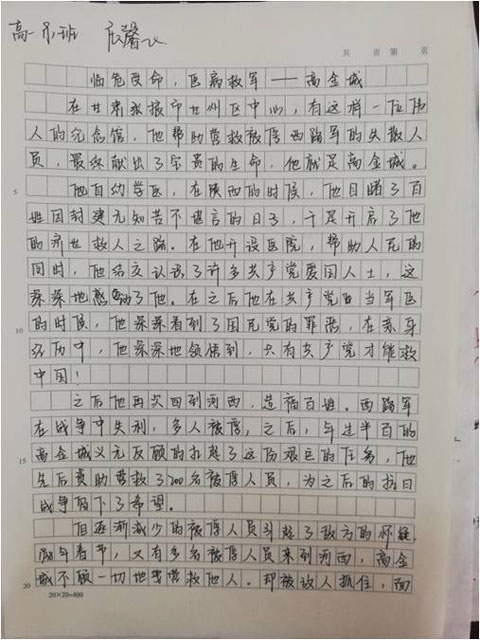 高一 班 馨
页 页 第 页
临危受命,医病救军——高金城
在甘肃张掖市甘州区中心,有这样一位伟
人的纪念馆,他帮助营救被俘西路军的失散人
员,最终献出了宝贵的生命,他就是高金城。
他自幼学医,在陕西的时候,他目睹了百
姓因封建无知苦不堪言的日子,于是开启了他
的济世救人之路。在他开设医院,帮助人民的
同时,他结交认识了许多共产党爱国人士,这
深深地感动了他。在之后他在共产党 当军医
的时候,他深深看到了国民党的罪恶,在亲身
经历中,他深深地领悟到,只有共产党才能救
中国!
之后他再次回到河西,造福百姓。西路军
在战争中失利,多人被俘,之后,年过半百的
高金城义无反顾的扛起了这份艰巨的任务,他
先后资助营救了200名被俘人员,为之后的抗日
战争留下了希望。
但逐渐减少的被俘人员引起了敌方的怀疑,
年春节,又有多名被俘人员来到河西,高金
城不顾一切地 营救他人。却被敌人抓住,面
5
10
15
20
20×20=400